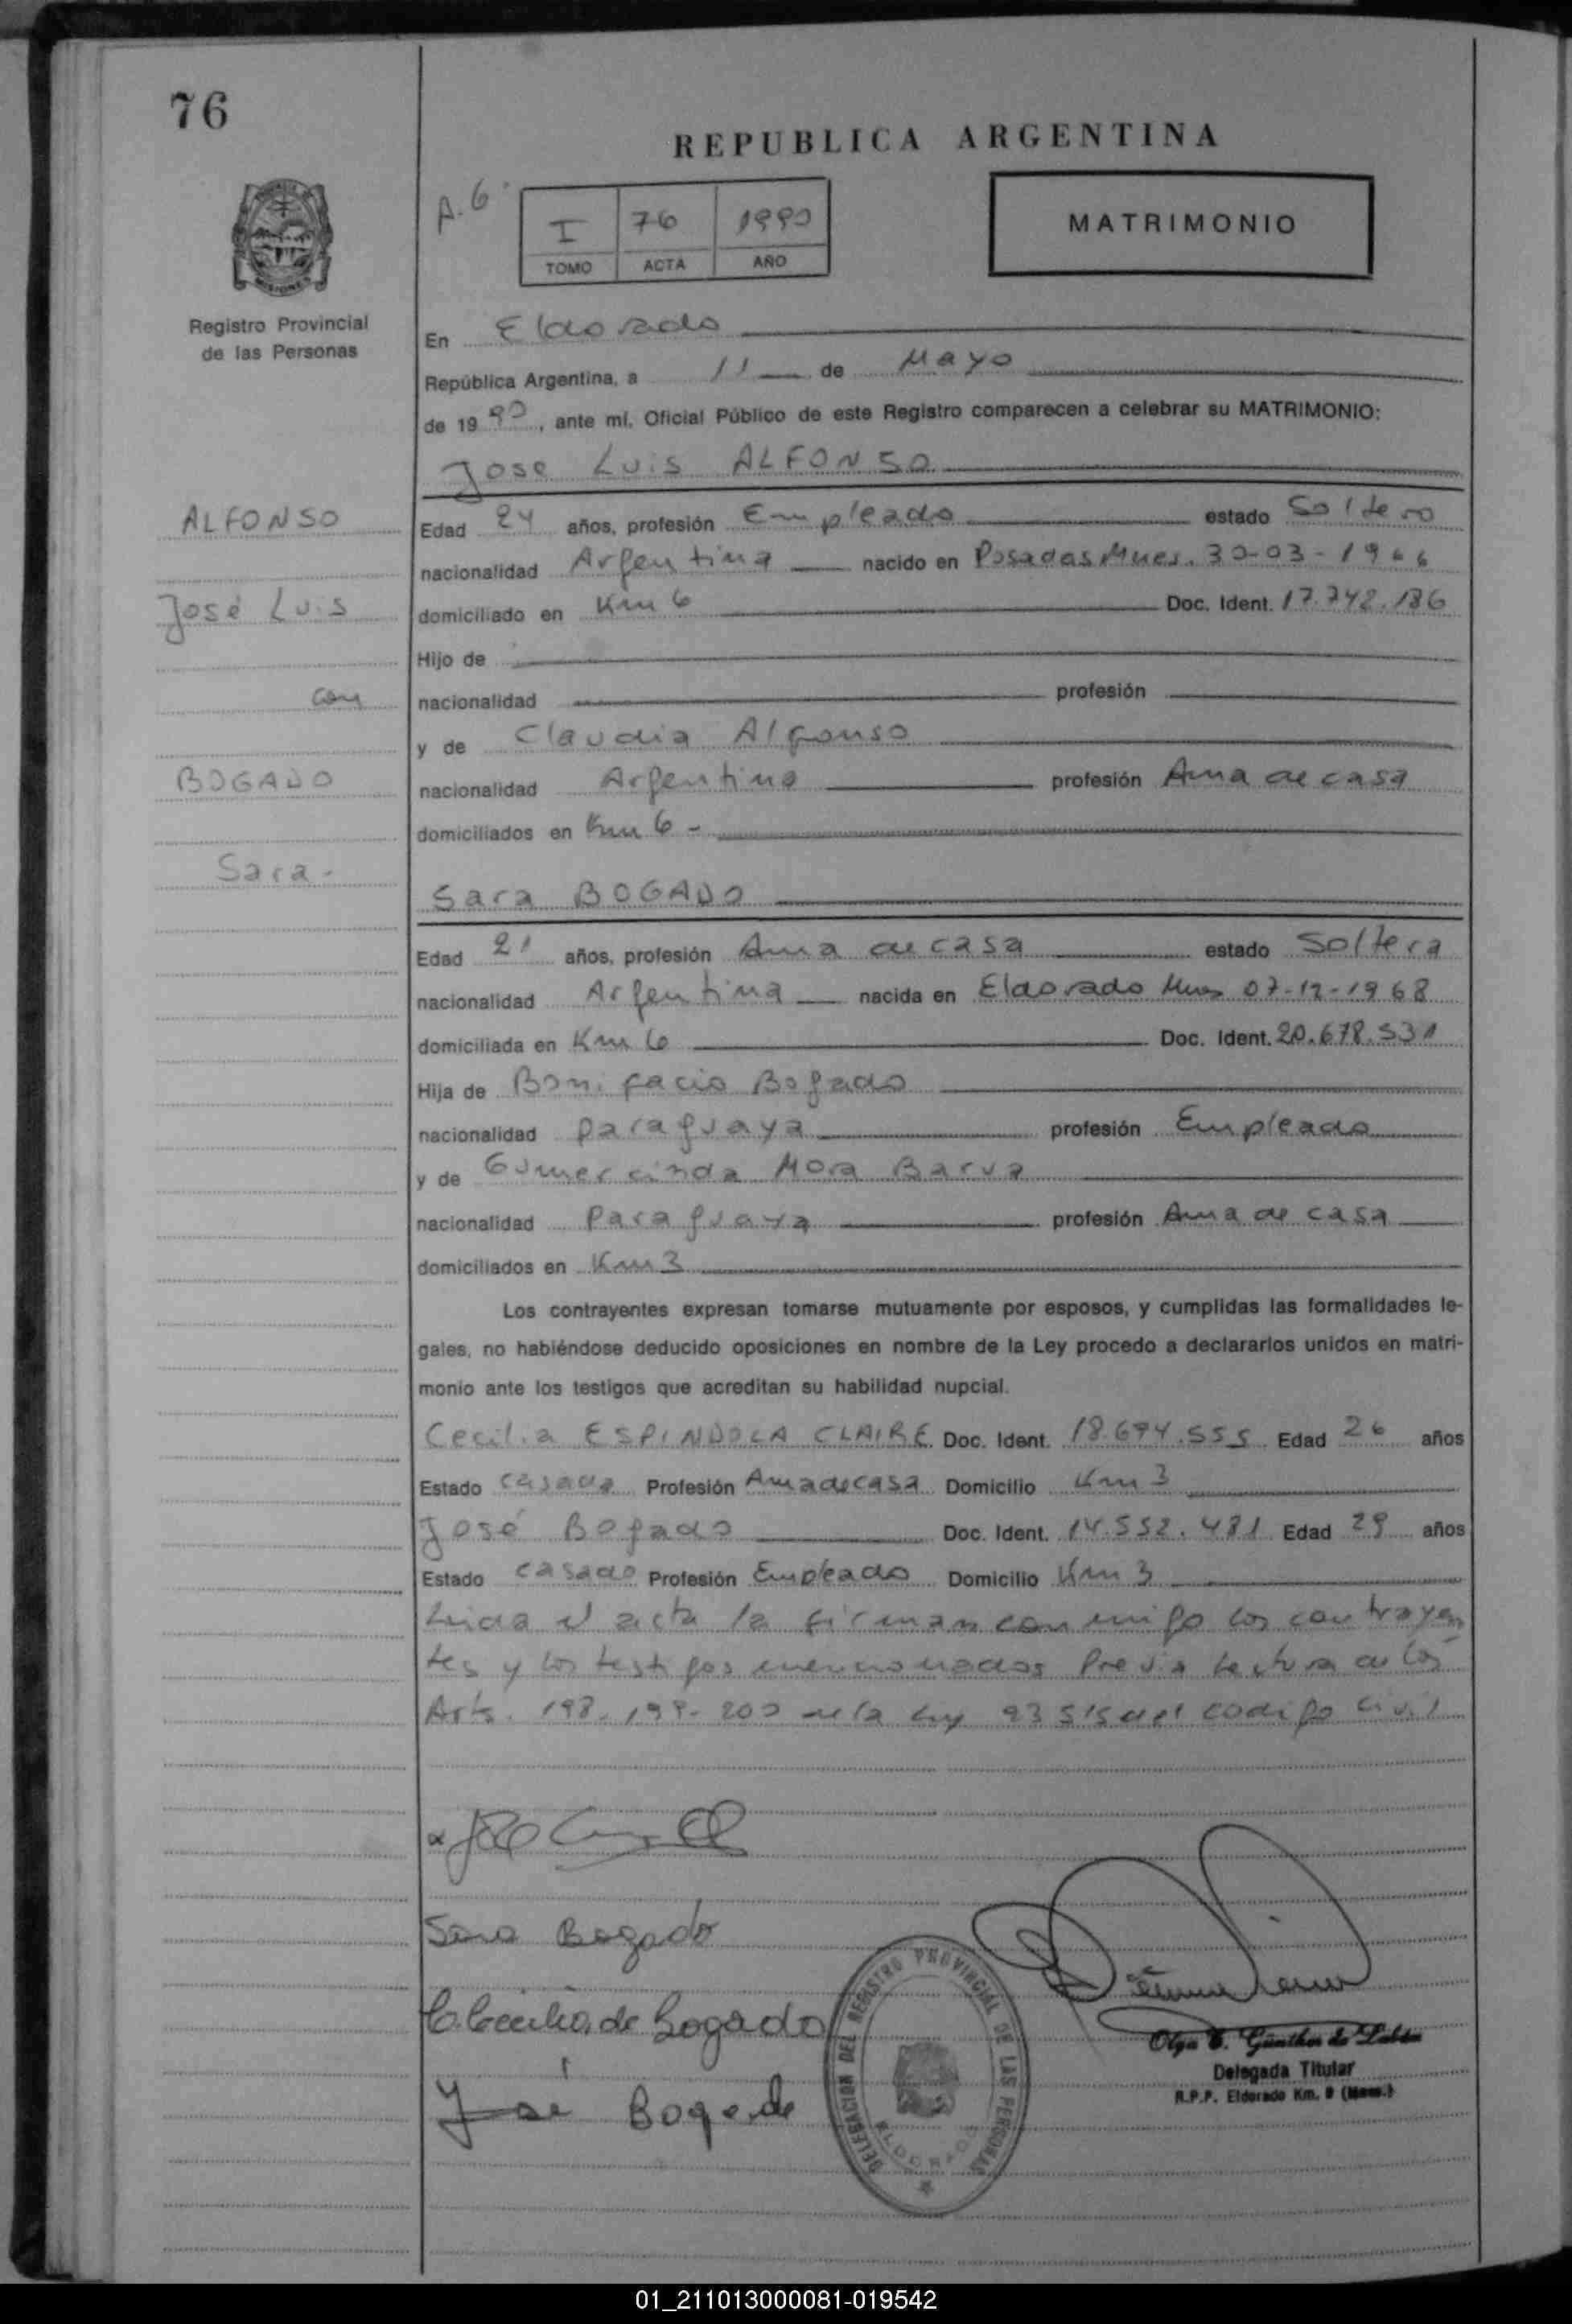 76
REPUBLICA ARGENTINA
A.6.
I 76 1990
TOMO ACTA AÑO
MATRIMONIO
MISIONES
Registro Provincial
de las Personas
En Eldorado
República Argentina, a 11 de Mayo
de 1990, ante mí, Oficial Público de este Registro comparecen a celebrar su MATRIMONIO:
Jose Luis ALFONSO
ALFONSO
José Luis
con
BOGADO
Sara-
Edad 24 años, profesión Empleado estado Soltero
nacionalidad Argentina nacido en Posadas Mnes. 30-03-1966
domiciliado en Km 6 Doc. Ident. 17.742.186
Hijo de
nacionalidad profesión
y de Claudia Alfonso
nacionalidad Argentina profesión Ama de casa
domiciliados en Km 6 -
Sara BOGADO
Edad 21 años, profesión Ama de casa estado Soltera
nacionalidad Argentina nacida en Eldorado Mnes 07-12-1968
domiciliada en Km 6 Doc. Ident. 20.678.531
Hija de Bonifacio Bogado
nacionalidad paraguaya profesión Empleado
y de Gumercinda Mora Barua
nacionalidad Paraguaya profesión Ama de casa
domiciliados en Km 3
Los contrayentes expresan tomarse mutuamente por esposos, y cumplidas las formalidades le-
gales, no habiéndose deducido oposiciones en nombre de la Ley procedo a declararlos unidos en matri-
monio ante los testigos que acreditan su habilidad nupcial.
Cecilia ESPINDOLA CLAIRE Doc. Ident. 18.694.555 Edad 26 años
Estado casada Profesión Ama de casa Domicilio Km 3
José Bogado Doc. Ident. 14.552.481 Edad 29 años
Estado casado Profesión Empleado Domicilio Km 3
Leida el acta la firman conmigo los contrayen
tes y los testigos mencionados Previa lectura de los
Arts. 198-199-200 de la Ley 23515 del codigo civil
Sara Bogado
C. Cecilia de Bogado
José Bogado
DELEGACION DEL REGISTRO PROVINCIAL DE LAS PERSONAS
ELDORADO
Olga E. Günther de
Delegada Titular
R.P.P. Eldorado Km. 9 (Mnes.)
01_211013000081-019542